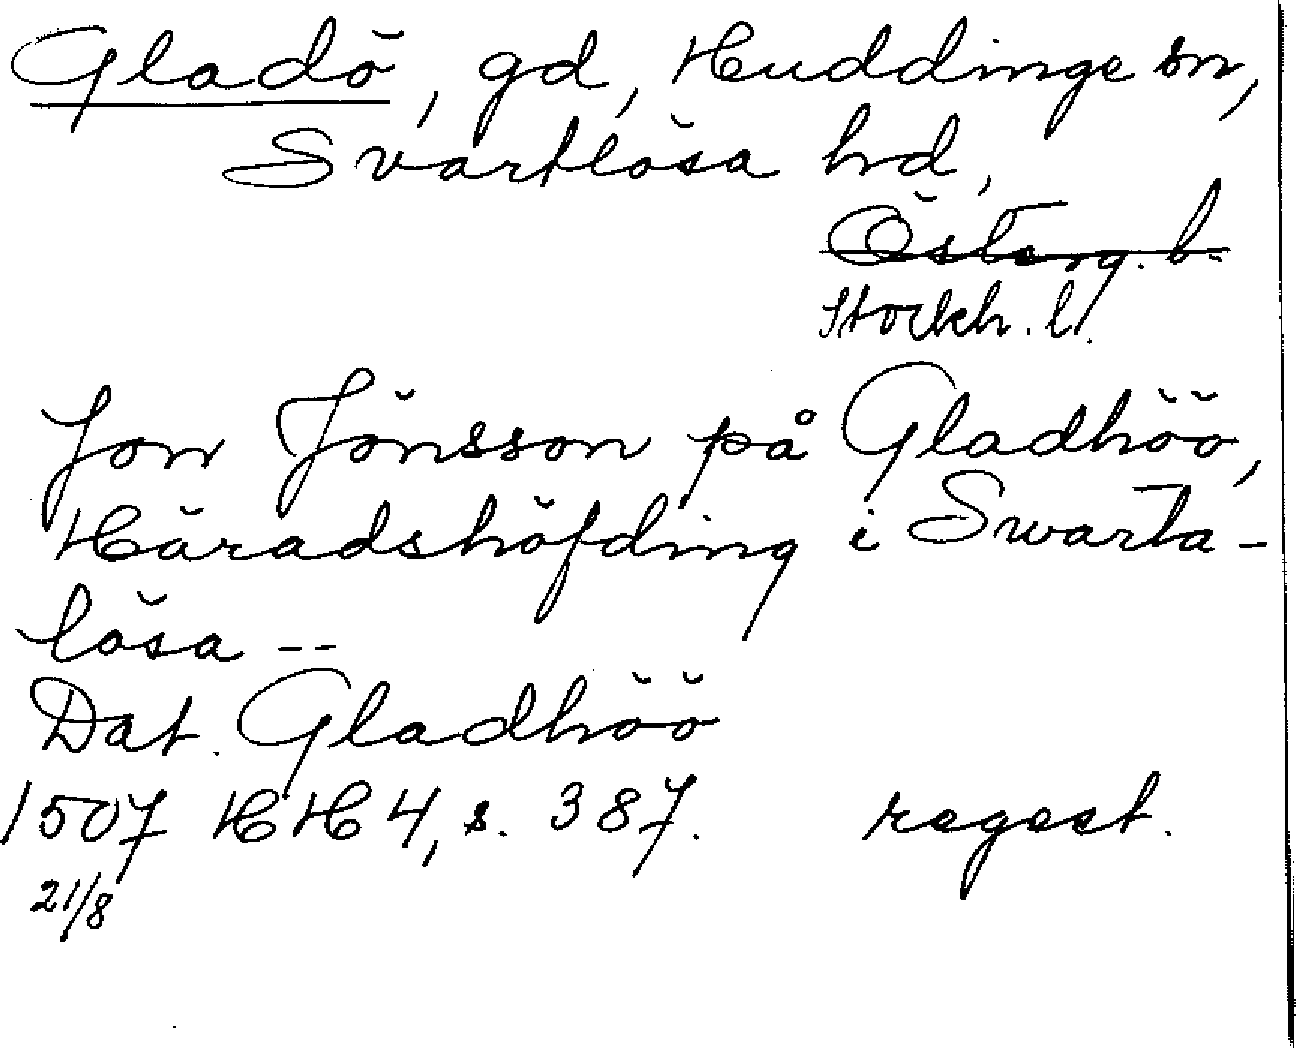 Gladö, gd, Huddinge sn,
Svartlösa hd,
Österg. l.
Stockh. l.
Jon Jönsson på Gladhöö,
Häradshöfding i Swarta-
lösa --
Dat. Gladhöö
1507 HH 4, s. 387. regest.
21/8